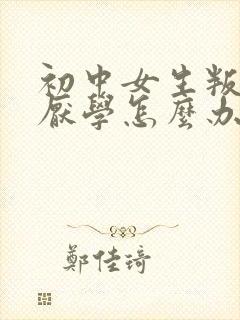 初中女生叛
厭學怎麼办
鄭佳琦